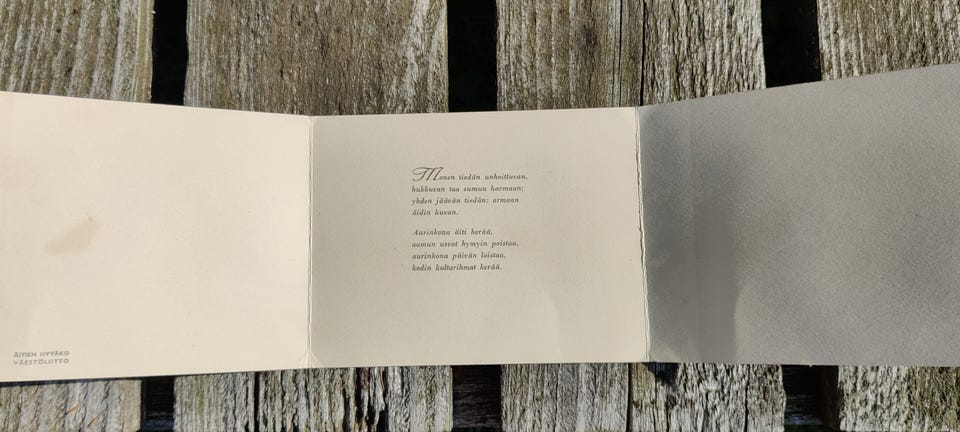 Monen tiedän unhoittuvan,
hukkuvan taa sumun harmaan;
yhden jäävän tiedän: armaan
äidin kuvan.
Aurinkona äiti herää,
aamun usvat hymyin poistaa,
aurinkona päivän loistaa,
kodin kultarihmat kerää.
ÄITIEN HYVÄKSI
VÄESTÖLIITTO